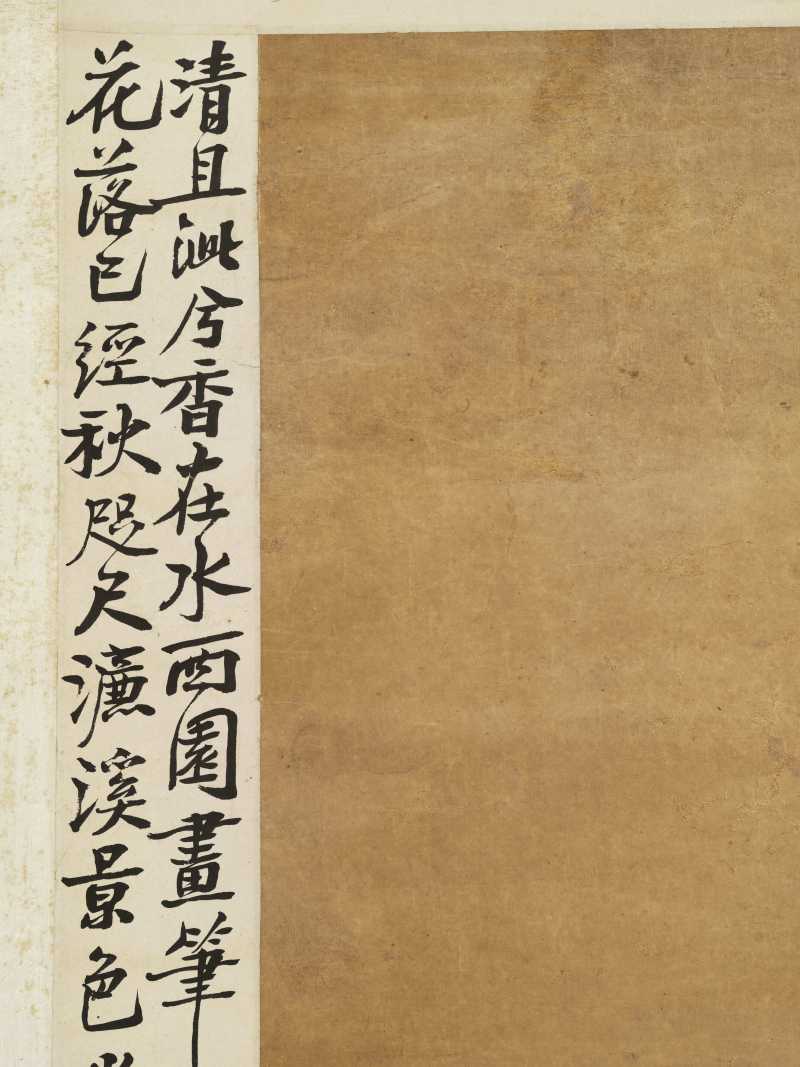 清且淛兮香在水西園畫筆
花落已經秋咫尺濂溪景色